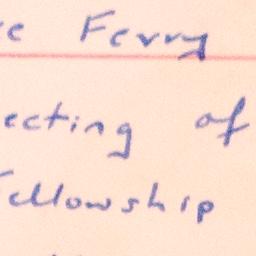 re Ferry
ecting of
ellowship